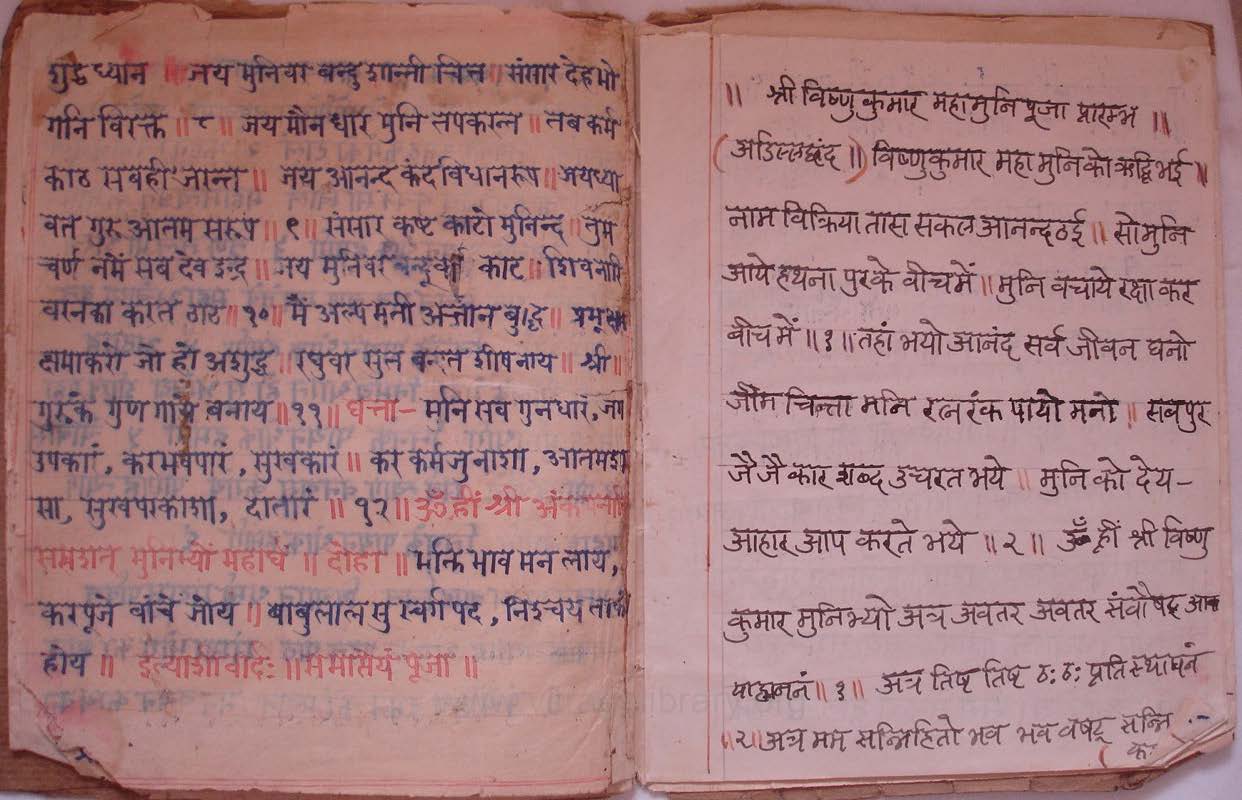 शुद्ध ध्यान ॥ जय मुनिवा वन्दु शान्ती चित्त ॥ संसार देह भो
गनि विरक्त ॥ ८ ॥ जय मौन धार मुनि तप करन्त ॥ तब कर्म
काठ सबही जरन्त ॥ जय आनन्द कंद विधान रूप ॥ जय ध्या
वत गुरु आतम सरूप ॥ ९ ॥ संसार कष्ट काटो मुनिन्द ॥ तुम
चर्ण नमें सब देव इन्द्र ॥ जय मुनिवर वन्दू कर्म काट ॥ शिवनारि
वरनका करत ठाठ ॥ १० ॥ मैं अल्प मती अज्ञान बुद्धि ॥
क्षमा करो जो हो अशुद्ध ॥ रघुवर सुत वन्दत शीषनाय ॥ श्री
गुरुके गुण गाये बनाय ॥ ११ ॥ घत्ता - मुनि सब गुनधारं, जग
उपकारं, कर भवपारं, सुखकारं ॥ कर कर्म जु नाशा, आतम
सा, सुखपरकाशा, दातारं ॥ १२ ॥ ॐ ह्रीं श्री
मुनिभ्यो महार्घ ॥ दोहा ॥ भक्ति भाव मन लाय,
कर पूजे वांचे जोय ॥ बाबुलाल सु स्वर्गपद, निश्चय
होय ॥ इत्याशीर्वादः ॥ समाप्तेयं पूजा ॥
॥ श्री विष्णुकुमार महामुनि पूजा प्रारम्भ ॥
(अडिल्लछंद ॥) विष्णुकुमार महा मुनि को ऋद्धि भई ॥
नाम विक्रिया तास सकल आनन्द ठई ॥ सो मुनि
आये हथनापुर के बीच में ॥ मुनि बचाये रक्षा कर
बीच में ॥ १ ॥ तहां भयो आनंद सर्व जीवन घनो
जौंम चिन्ता मनि रत्न रंक पायो मनो ॥ सब पुर
जै जै कार शब्द उचरत भये ॥ मुनि को देय -
आहार आप करते भये ॥ २ ॥ ॐ ह्रीं श्री विष्णु
कुमार मुनिभ्यो अत्र अवतर अवतर संवौषट्
वाहाननं ॥ १ ॥ अत्र तिष्ठ तिष्ठ ठः ठः प्रति स्थापनं
॥ २ ॥ अत्र मम सन्निहितो भव भव वषट् सन्नि
क